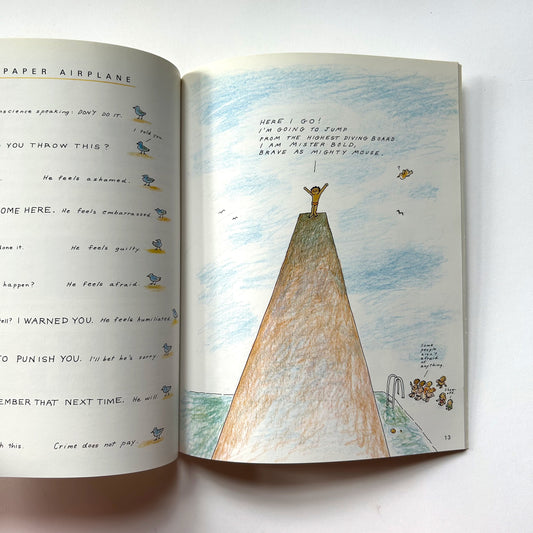 PAPER AIRPLANE
nscience speaking: DON'T DO IT.
I told you.
YOU THROW THIS?
He feels ashamed.
OME HERE. He feels embarrassed
done it. He feels guilty
happen? He feels afraid
ell? I WARNED YOU. He feels humiliated
TO PUNISH YOU. I'll bet he's sorry.
EMBER THAT NEXT TIME. He will.
h this. Crime does not pay.
HERE I GO!
I'M GOING TO JUMP
FROM THE HIGHEST DIVING BOARD.
I AM MISTER BOLD,
BRAVE AS MIGHTY MOUSE.
?
Some
people
aren't
afraid
of
anything.
Show-
off.
13